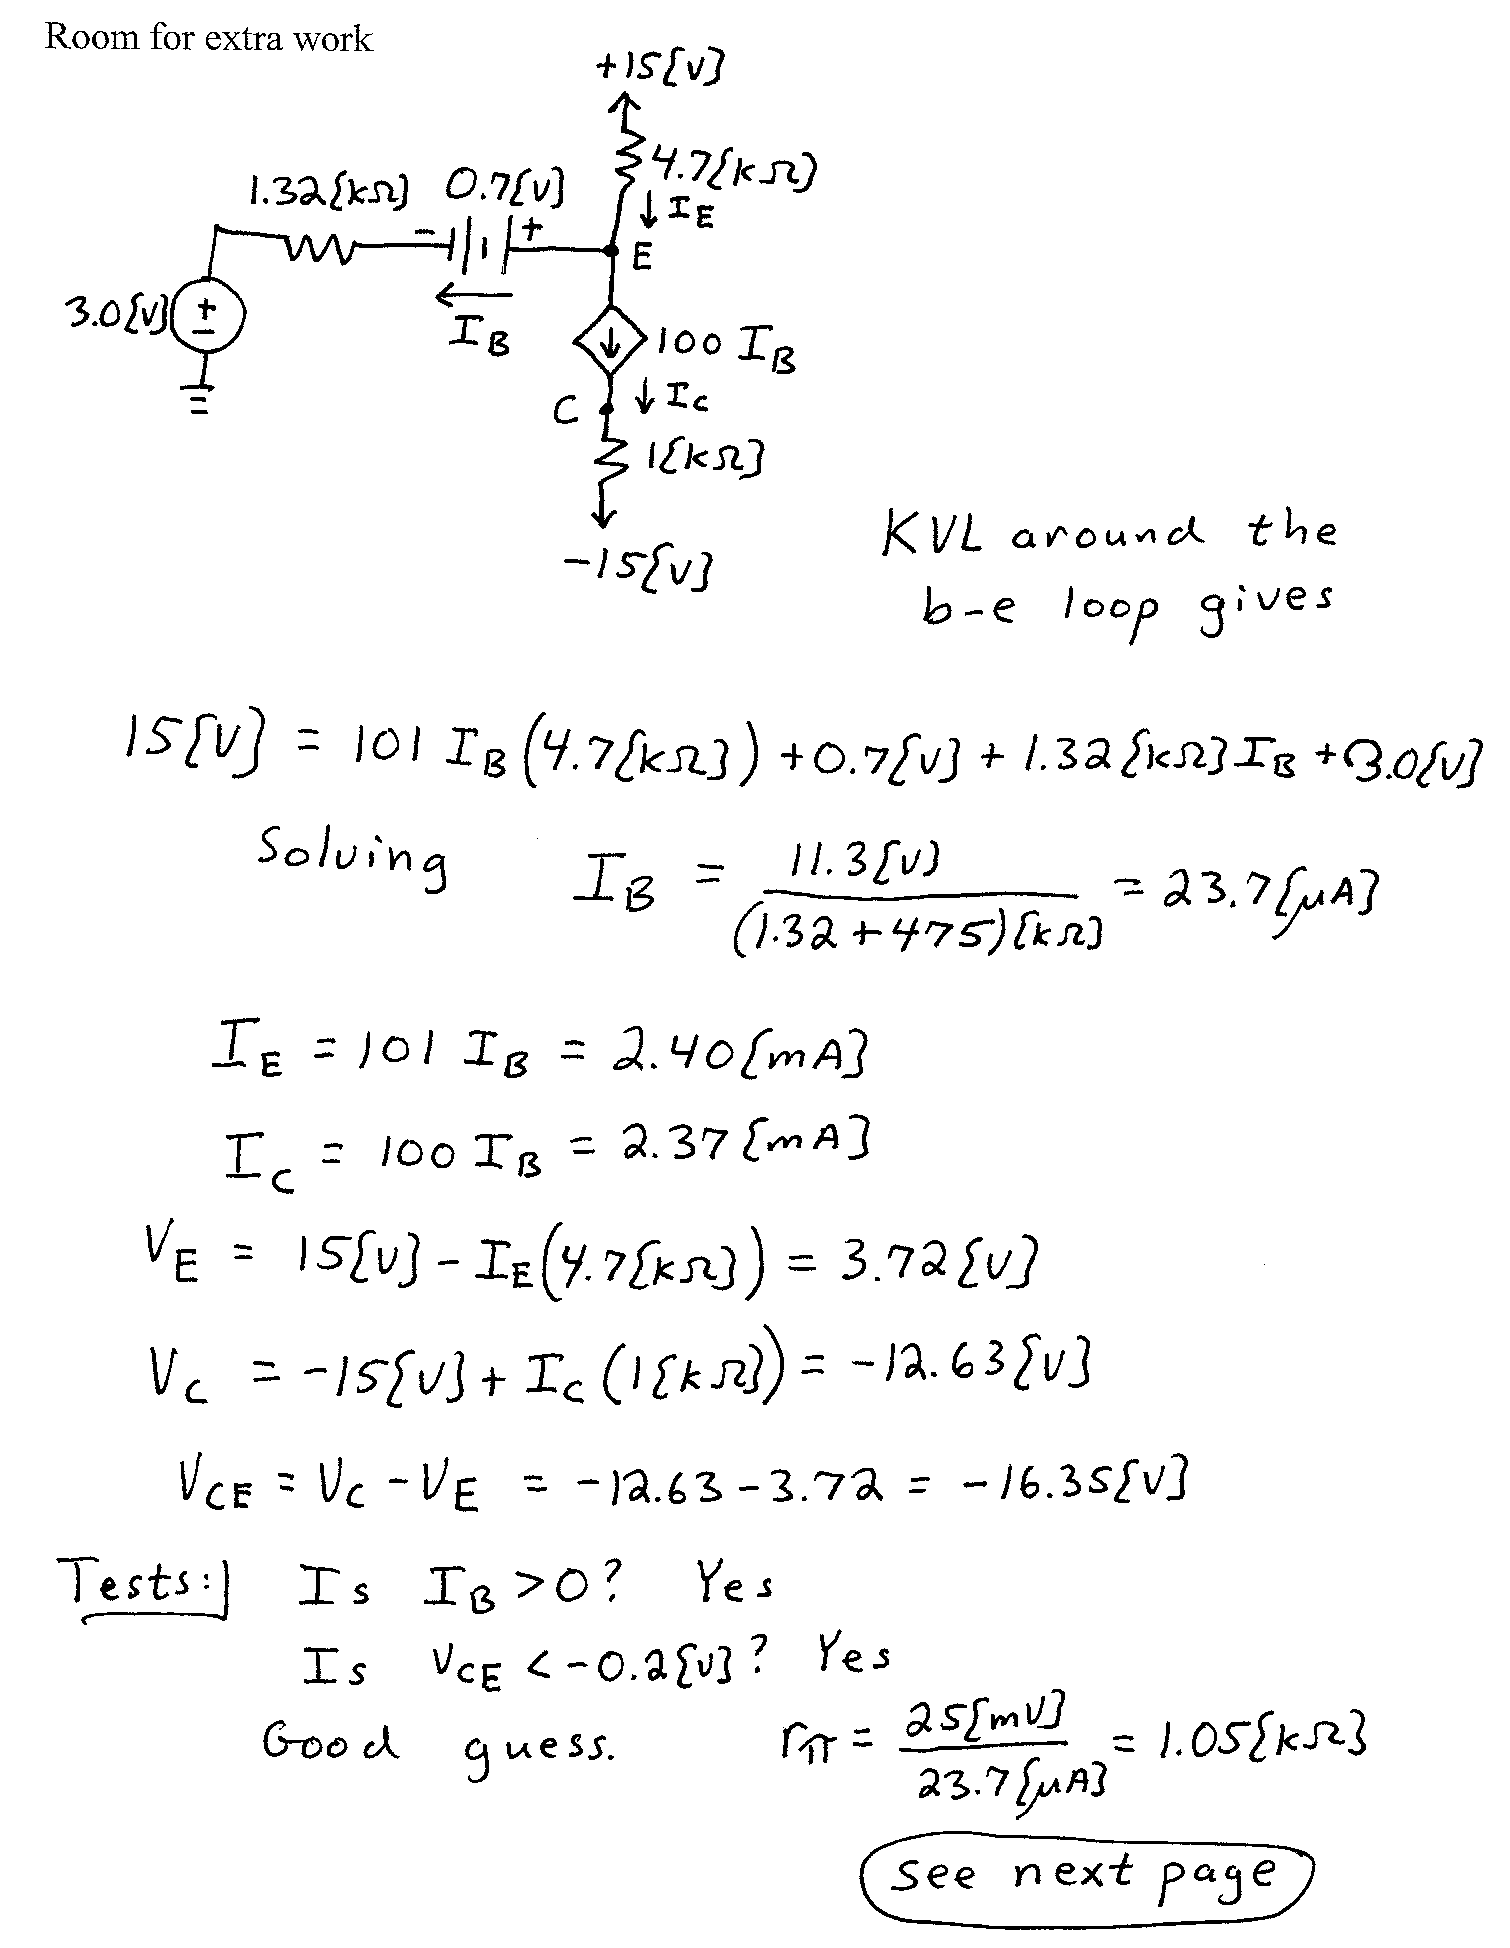 Room for extra work
+15[V]
4.7[kΩ]
1.32[kΩ] 0.7[V]
I_E
- +
E
3.0[V] + -
I_B
100 I_B
C I_C
1[kΩ]
-15[V]
KVL around the
b-e loop gives
15[V] = 101 I_B (4.7[kΩ]) + 0.7[V] + 1.32[kΩ] I_B + 3.0[V]
Solving I_B = 11.3[V] / (1.32 + 475)[kΩ] = 23.7[μA]
I_E = 101 I_B = 2.40[mA]
I_C = 100 I_B = 2.37[mA]
V_E = 15[V] - I_E (4.7[kΩ]) = 3.72[V]
V_C = -15[V] + I_C (1[kΩ]) = -12.63[V]
V_CE = V_C - V_E = -12.63 - 3.72 = -16.35[V]
Tests: Is I_B > 0? Yes
Is V_CE < -0.2[V]? Yes
Good guess. r_π = 25[mV] / 23.7[μA] = 1.05[kΩ]
see next page